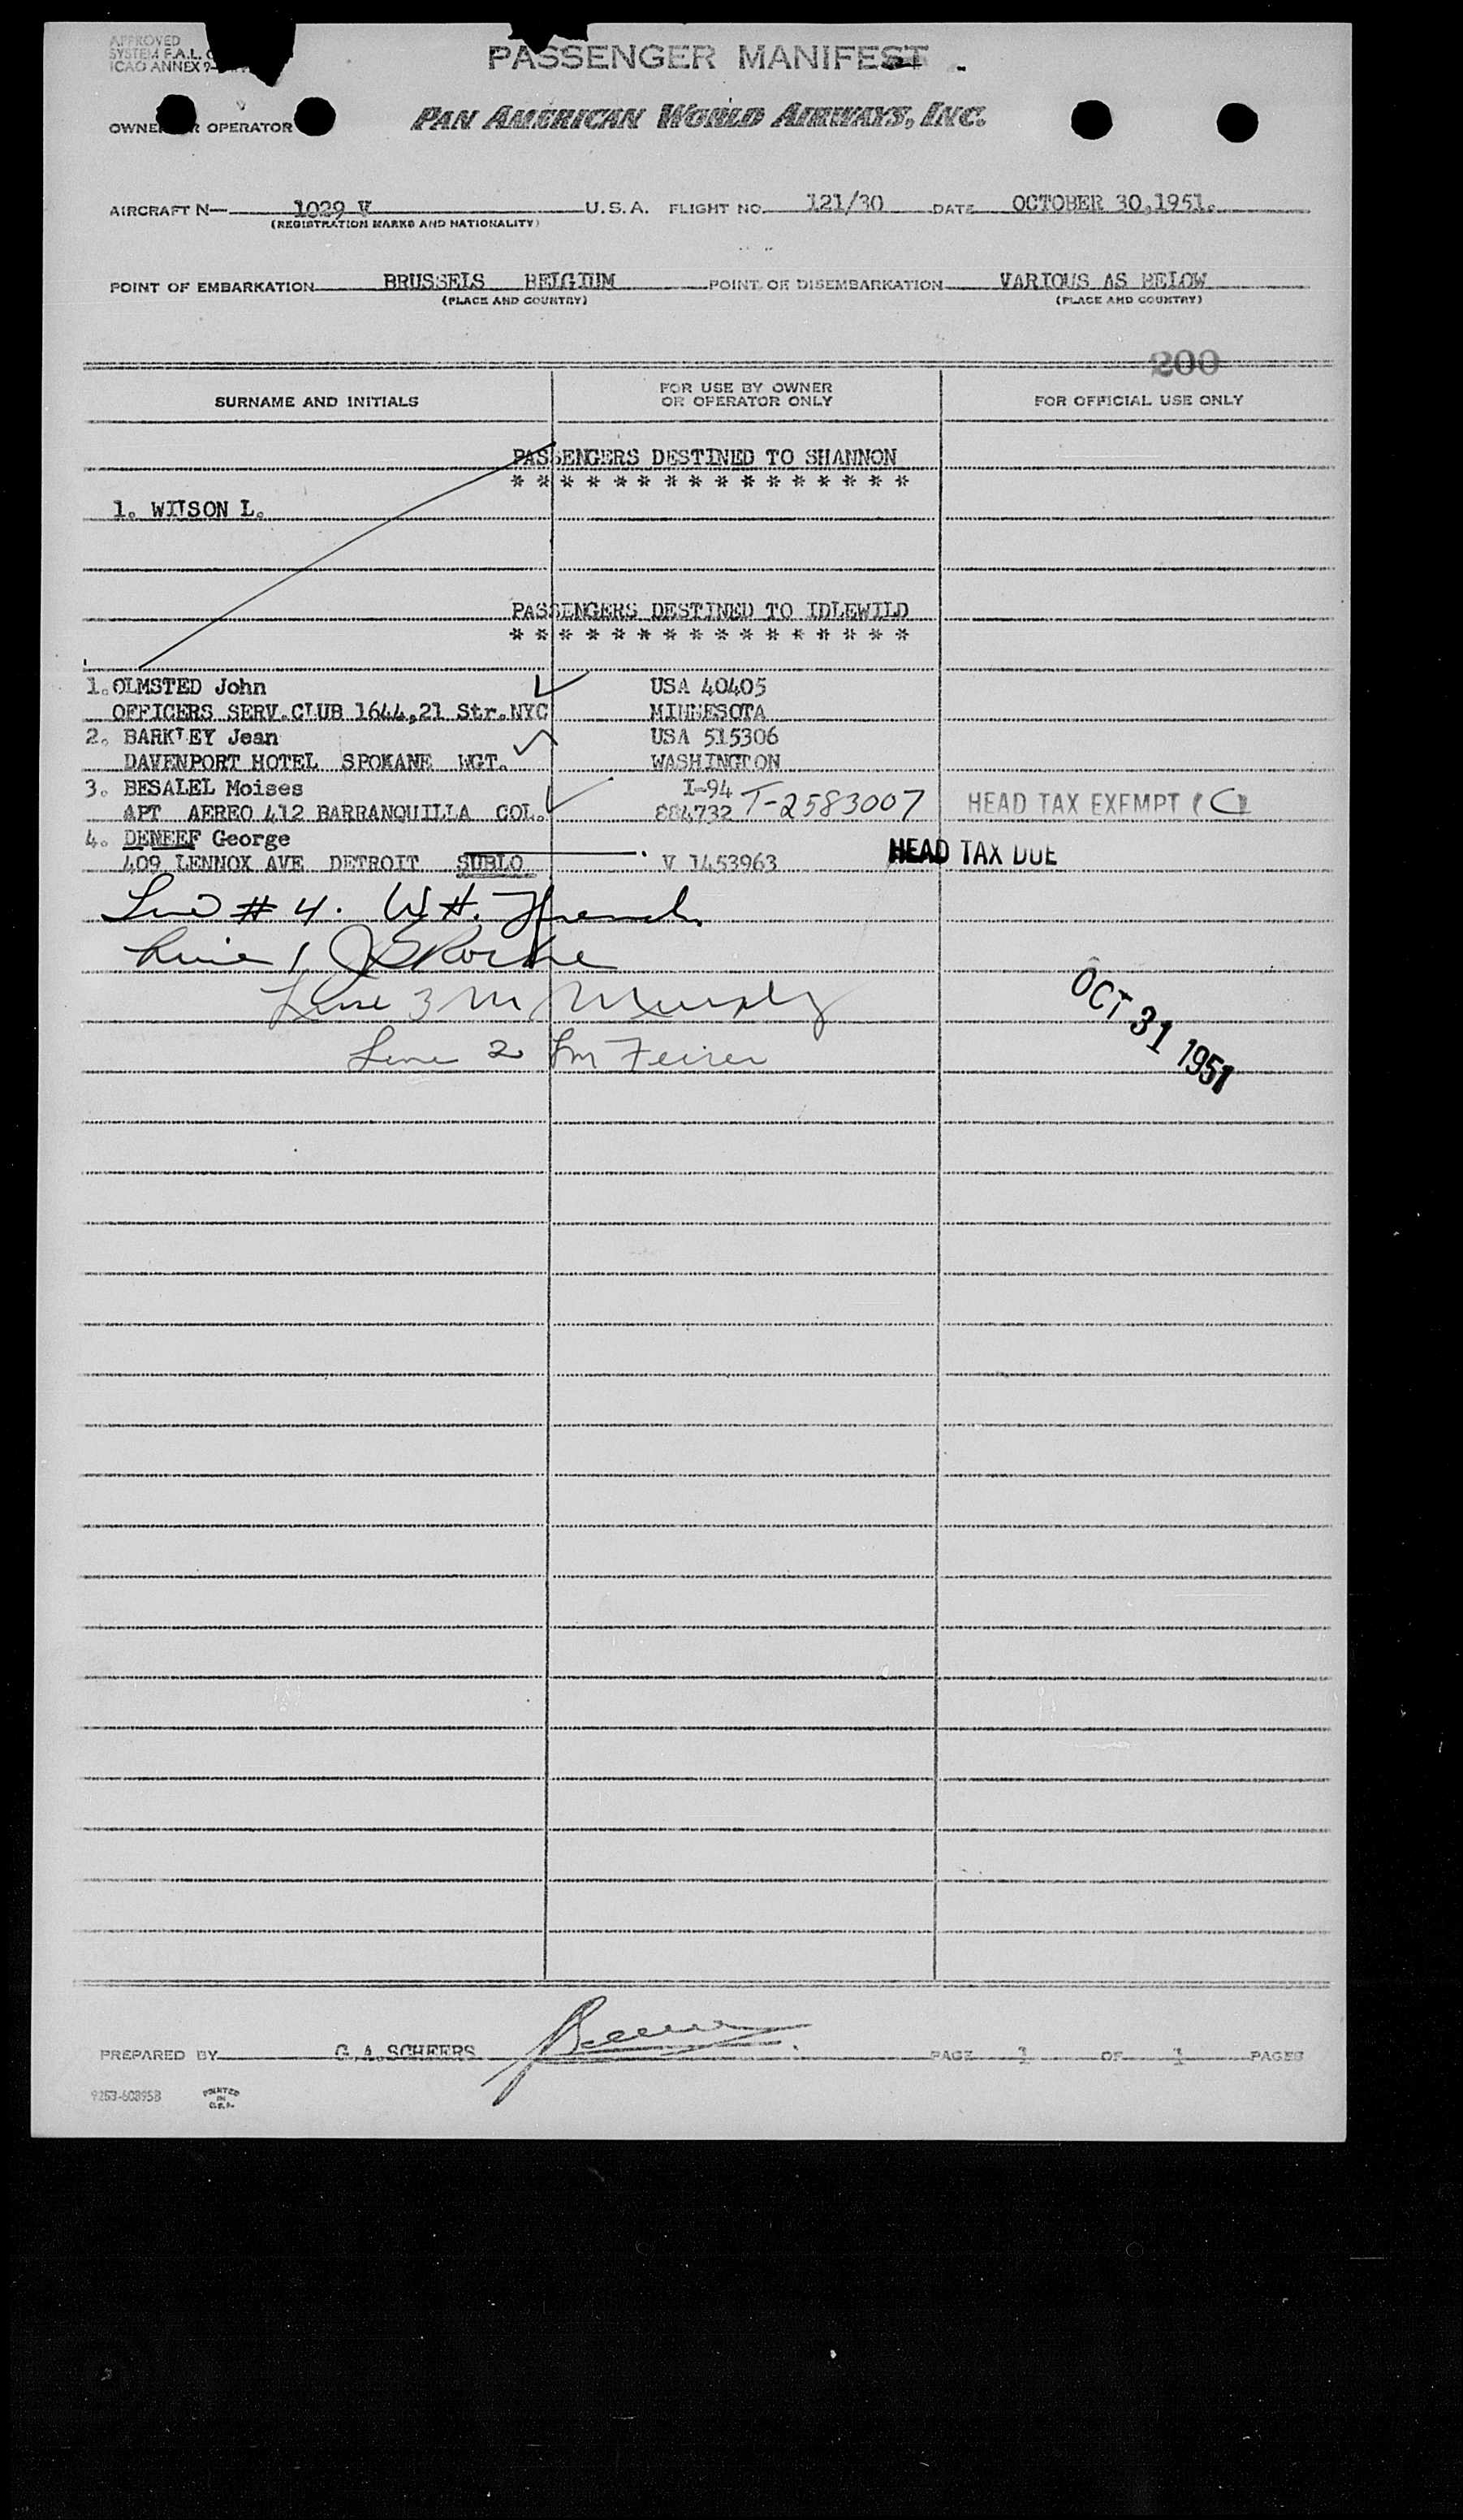 APPROVED
SYSTEM F.A.L.
ICAO ANNEX 9
PASSENGER MANIFEST
OWNER OR OPERATOR PAN AMERICAN WORLD AIRWAYS, INC.
AIRCRAFT N— 1029 V U.S.A. FLIGHT NO. 121/30 DATE OCTOBER 30,1951.
(REGISTRATION MARKS AND NATIONALITY)
POINT OF EMBARKATION BRUSSELS BELGIUM POINT OF DISEMBARKATION VARIOUS AS BELOW
(PLACE AND COUNTRY) (PLACE AND COUNTRY)
200
SURNAME AND INITIALS FOR USE BY OWNER OR OPERATOR ONLY FOR OFFICIAL USE ONLY
PASSENGERS DESTINED TO SHANNON
* * * * * * * * * * * * * * * *
1. WILSON L.
PASSENGERS DESTINED TO IDLEWILD
* * * * * * * * * * * * * * * *
1. OLMSTED John USA 40405
OFFICERS SERV.CLUB 1644,21 Str.NYC MINNESOTA
2. BARKLEY Jean USA 515306
DAVENPORT HOTEL SPOKANE WGT. WASHINGTON
3. BESALEL Moises I-94
APT AEREO 412 BARRANQUILLA COL. 884732 T-2583007 HEAD TAX EXEMPT (C)
4. DENEEF George
409 LENNOX AVE DETROIT SUBLO V 1453963 HEAD TAX DUE
Line # 4. W.H. French
Line 1
Line 3 M Murphy
Line 2
OCT 31 1951
PREPARED BY G.A.SCHEERS PAGE 1 OF 1 PAGES
9253-60395B PRINTED IN U.S.A.